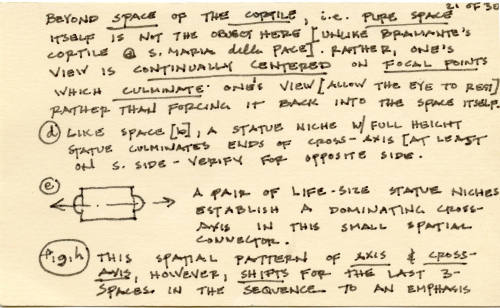 21 OF 30
BEYOND SPACE OF THE CORTILE, i.e. PURE SPACE
ITSELF IS NOT THE OBJECT HERE [UNLIKE BRAMANTE'S
CORTILE @ S. MARIA della PACE]. RATHER, ONE'S
VIEW IS CONTINUALLY CENTERED ON FOCAL POINTS
WHICH CULMINATE ONE'S VIEW [ALLOW THE EYE TO REST]
RATHER THAN FORCING IT BACK INTO THE SPACE ITSELF.
(d) LIKE SPACE [b], A STATUE NICHE W/ FULL HEIGHT
STATUE CULMINATES ENDS OF CROSS-AXIS [AT LEAST
ON S. SIDE - VERIFY FOR OPPOSITE SIDE.
(e) A PAIR OF LIFE-SIZE STATUE NICHES
ESTABLISH A DOMINATING CROSS-
AXIS IN THIS SMALL SPATIAL
CONNECTOR.
(f,g,h) THIS SPATIAL PATTERN OF AXIS & CROSS-
AXIS, HOWEVER, SHIFTS FOR THE LAST 3-
SPACES IN THE SEQUENCE TO AN EMPHASIS